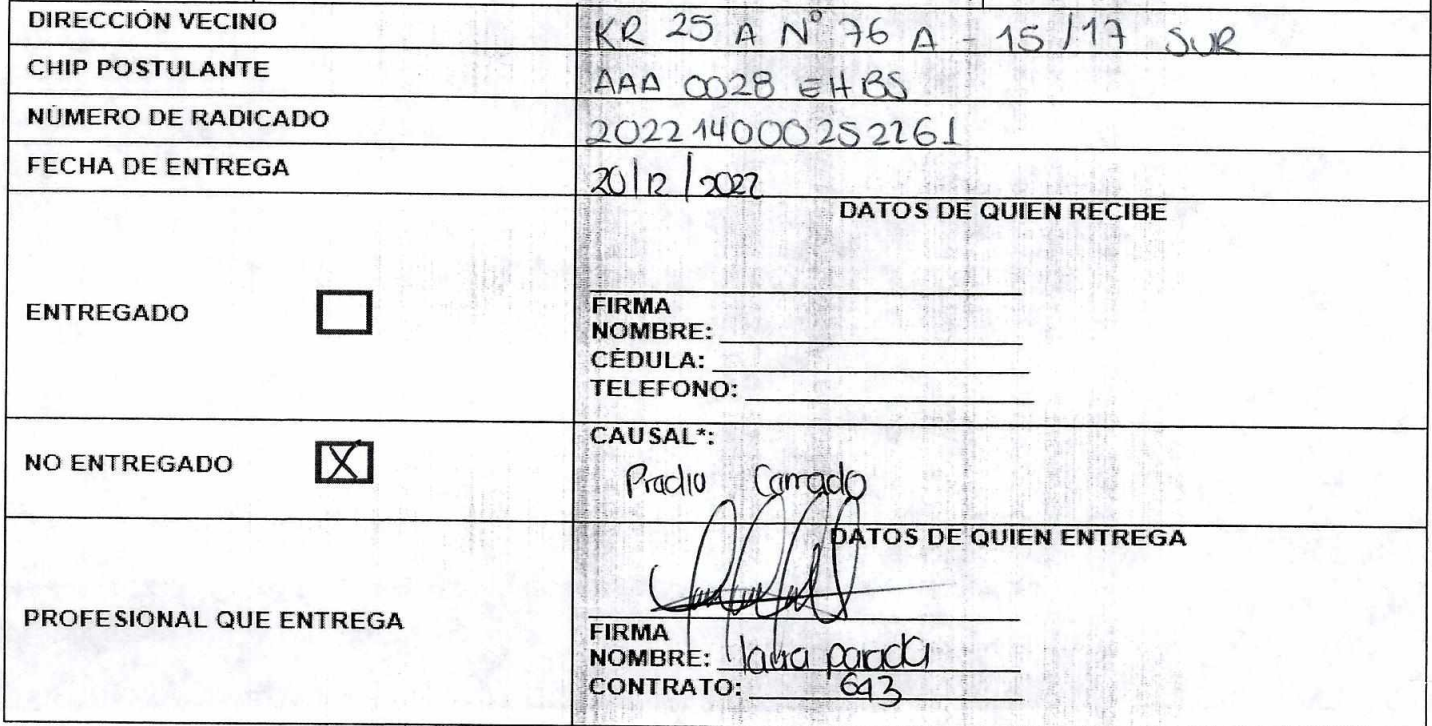 DIRECCIÓN VECINO KR 25 A N° 76 A - 15/17 SUR
CHIP POSTULANTE AAA 0028 EHBS
NÚMERO DE RADICADO 202214000252261
FECHA DE ENTREGA 20/12/2022
DATOS DE QUIEN RECIBE
ENTREGADO
FIRMA
NOMBRE:
CÉDULA:
TELEFONO:
NO ENTREGADO X
CAUSAL*:
Predio Cerrado
DATOS DE QUIEN ENTREGA
PROFESIONAL QUE ENTREGA
FIRMA
NOMBRE: parada
CONTRATO: 643